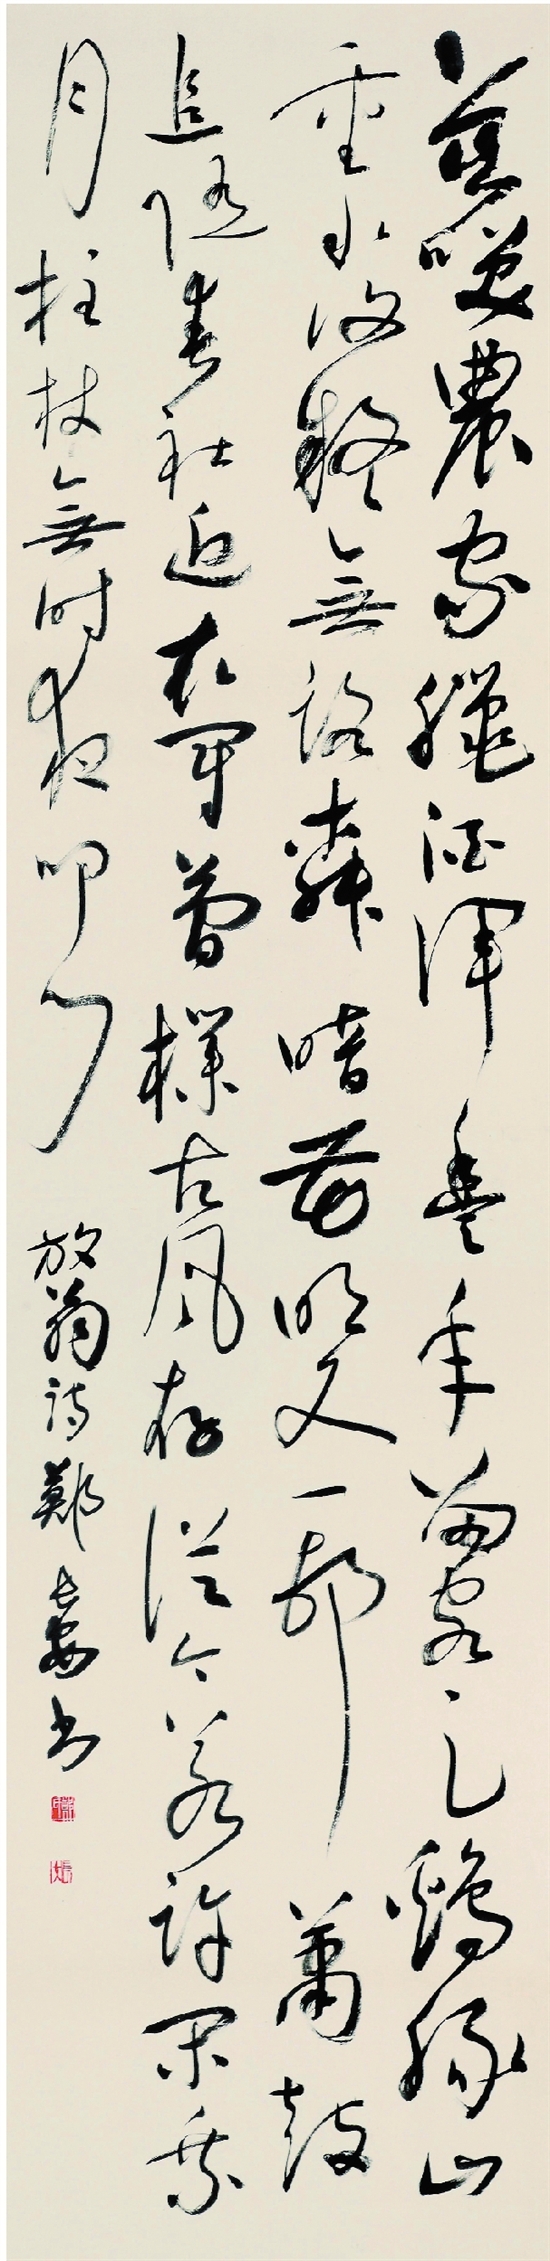 莫笑農家臘酒渾豐年留客足鷄豚山
重水複疑無路柳暗花明又一邨簫鼓
追隨春社近衣冠簡樸古風存從今若許閑乘
月拄杖無時夜叩門 放翁詩鄭書